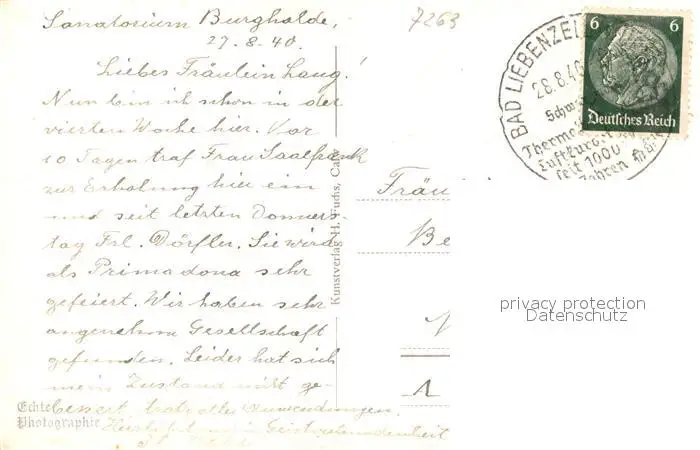 Sanatorium Burghalde,
7263
27.8.40.
Liebes Fräulein Lang!
Nun bin ich schon in der
vierten Woche hier. Vor
10 Tagen traf Frau Saalfrank
zur Erholung hier ein
und seit letzten Donners-
tag Frl. Dörfler. Sie wird
als Primadona sehr
gefeiert. Wir haben sehr
angenehme Gesellschaft
gefunden. Leider hat sich
mein Zustand nicht ge-
bessert trotz aller Anwendungen.
Echte
Photographie
Kunstverlag H. Fuchs, Calw
Fräu
Be
1
BAD LIEBENZELL
28.8.40
Schw
Luftkurort
seit 1000
Jahren
6 6
Deutsches Reich
privacy protection
Datenschutz